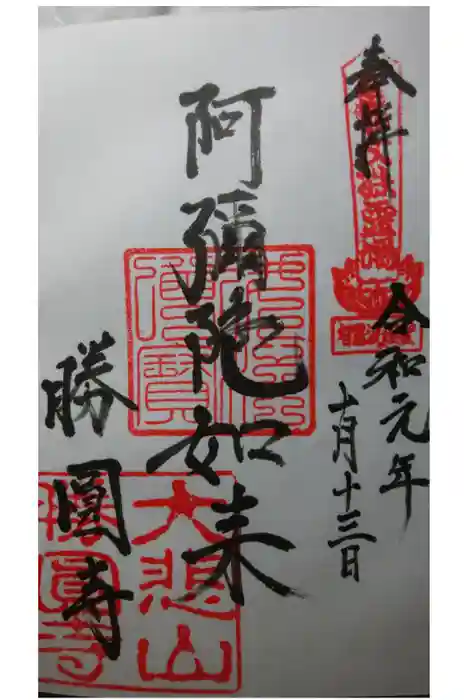 奉拝
令和元年
十月十三日
阿彌陀如来
勝圓寺
佛法僧寶
大悲山
勝圓寺